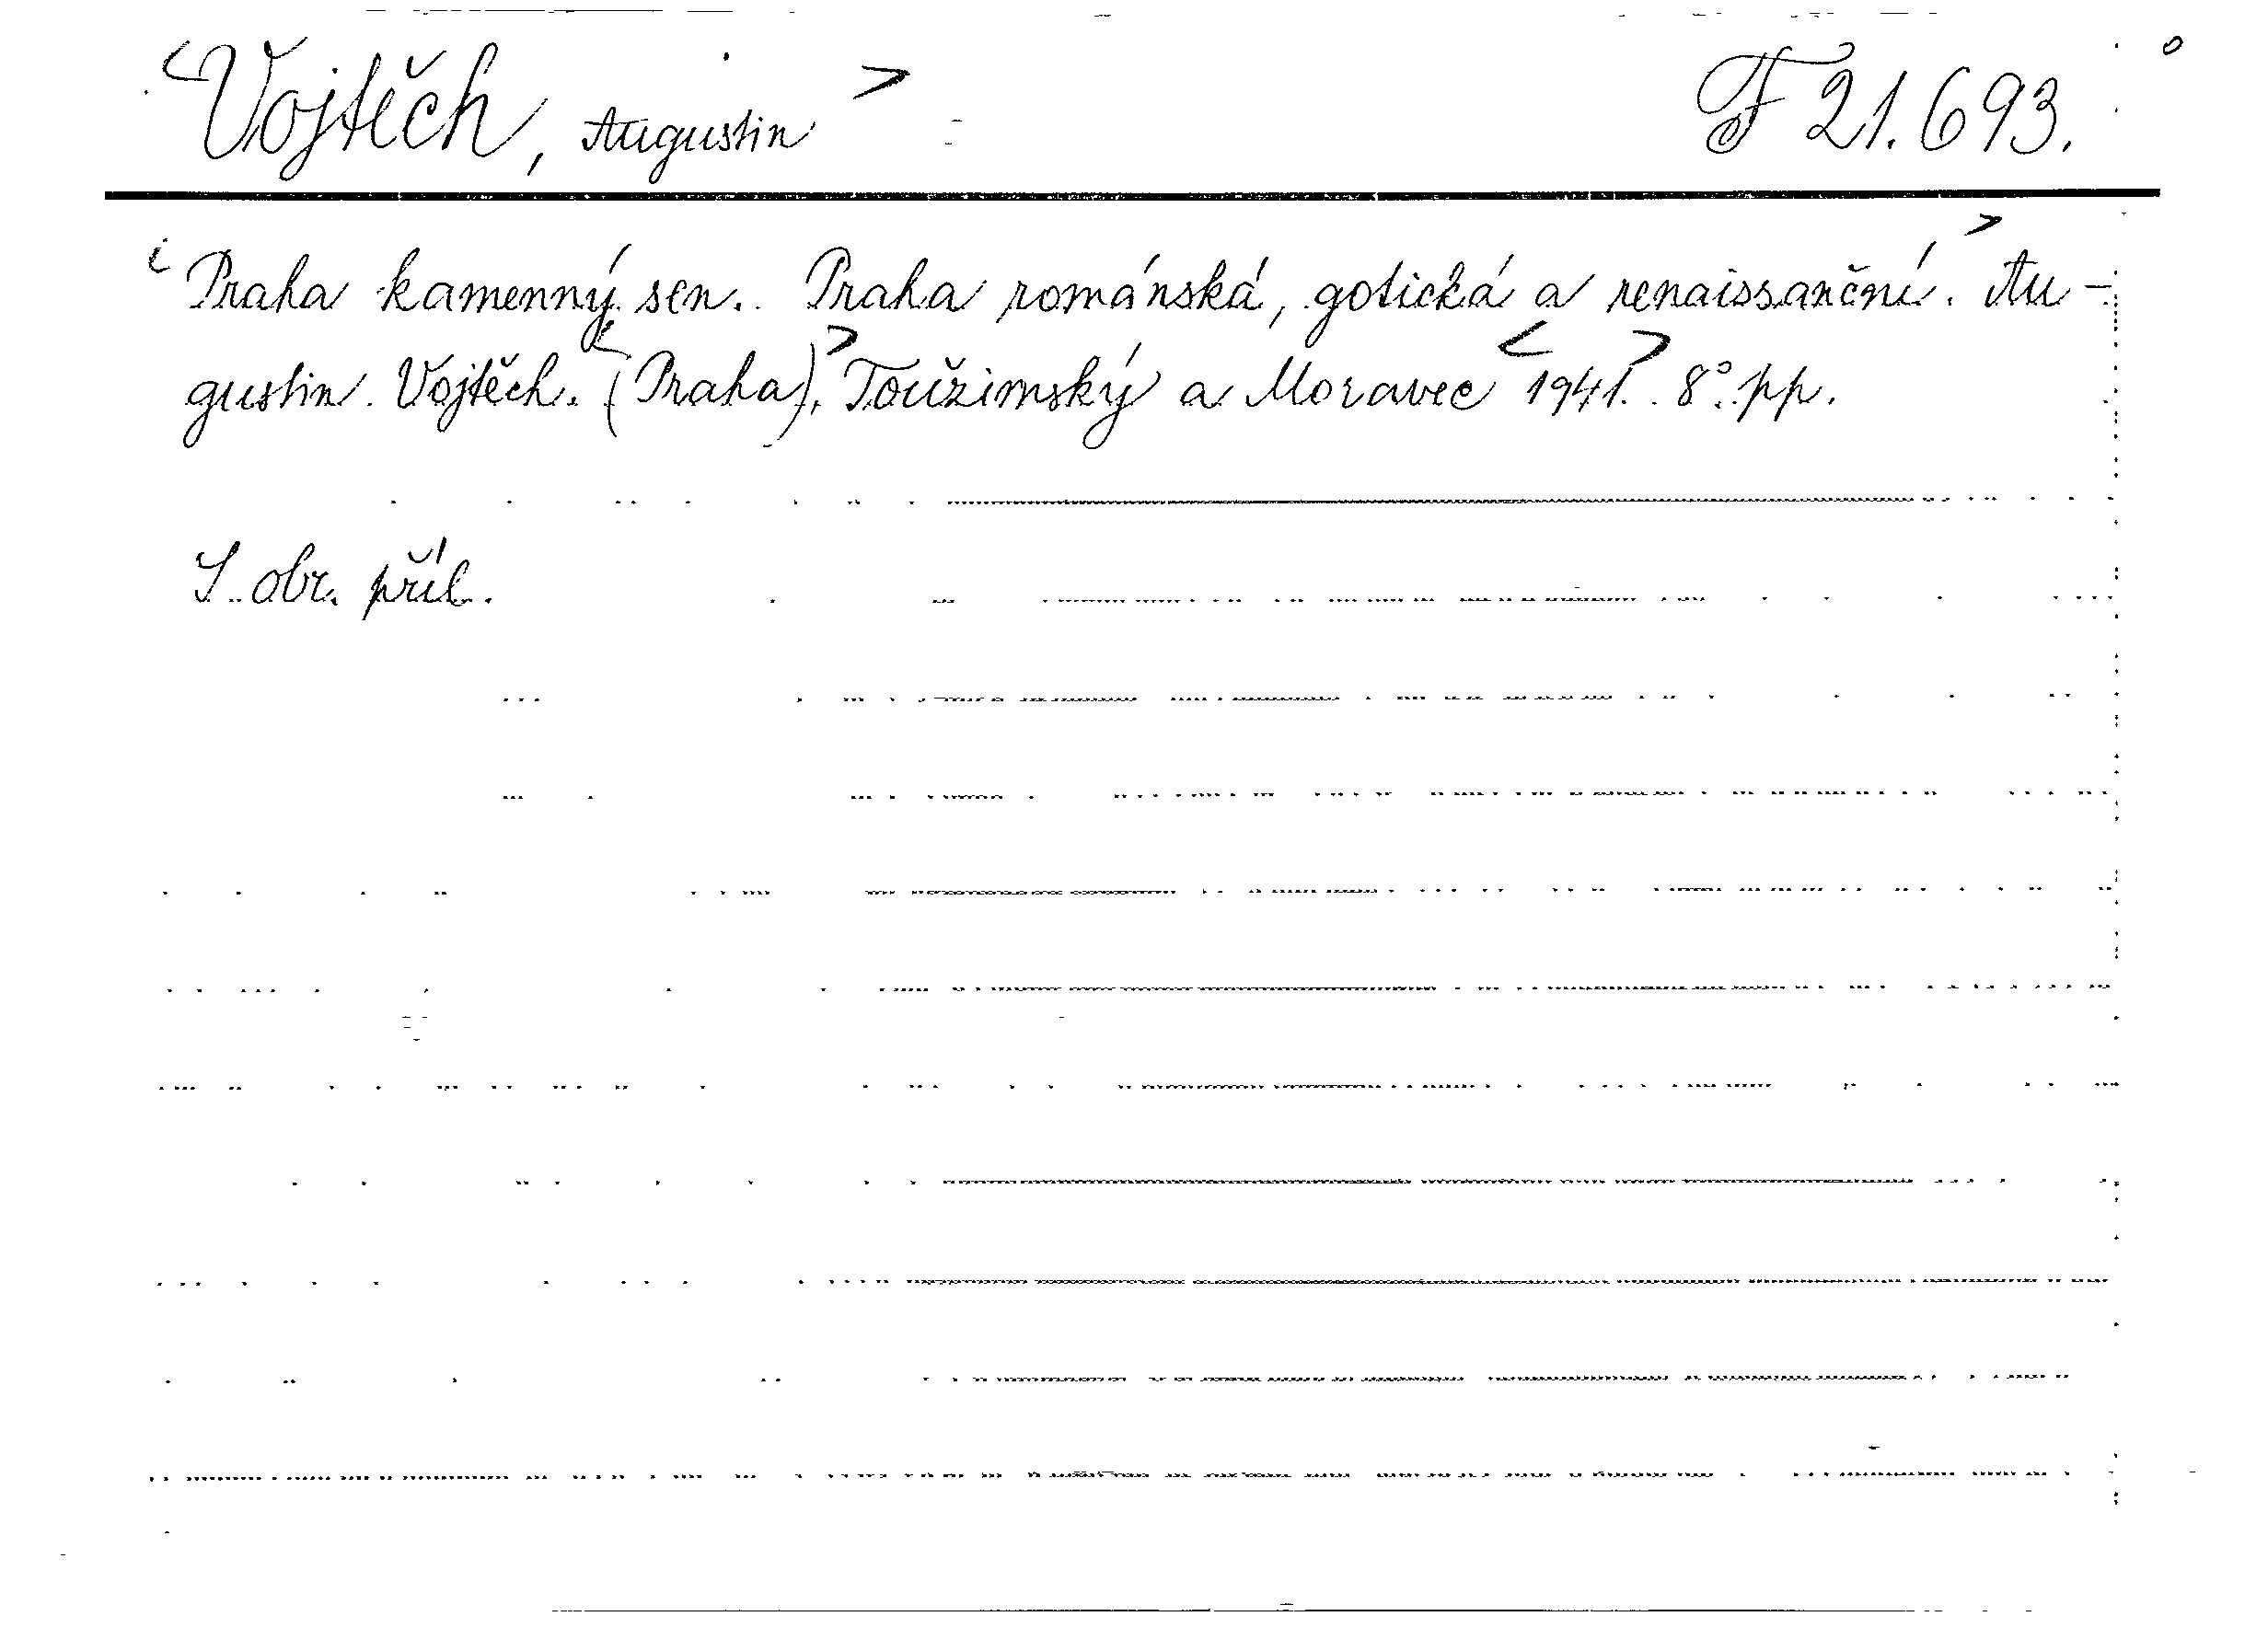 <Vojtěch, Augustin> F 21.693.
<Praha kamenný sen. Praha románská, gotická a renaissanční.> Au-
gustin Vojtěch. <(Praha),> Toužimský a Moravec <1941.> 8° pp.
S obr. příl.